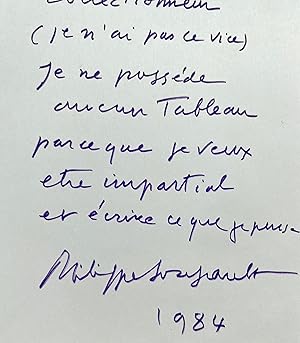 collectionneur
(je n'ai pas ce vice)
Je ne posséde
aucun Tableau
parce que je veux
etre impartial
et écrire ce que je pense
Philippe Soupault
1984